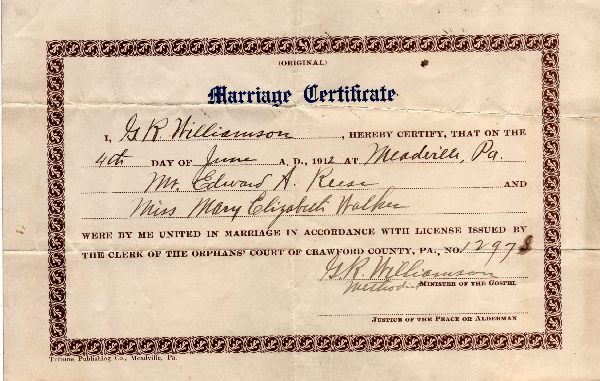 (ORIGINAL)
Marriage Certificate
I, G R Williamson, HEREBY CERTIFY, THAT ON THE
4th DAY OF June A. D., 1912 AT Meadville, Pa.
Mr. Edward A. Reese AND
Miss Mary Elizabeth Walker
WERE BY ME UNITED IN MARRIAGE IN ACCORDANCE WITH LICENSE ISSUED BY
THE CLERK OF THE ORPHANS' COURT OF CRAWFORD COUNTY, PA., NO. 12978
G. R. Williamson
Methodist MINISTER OF THE GOSPEL
JUSTICE OF THE PEACE OR ALDERMAN
Tribune Publishing Co., Meadville, Pa.